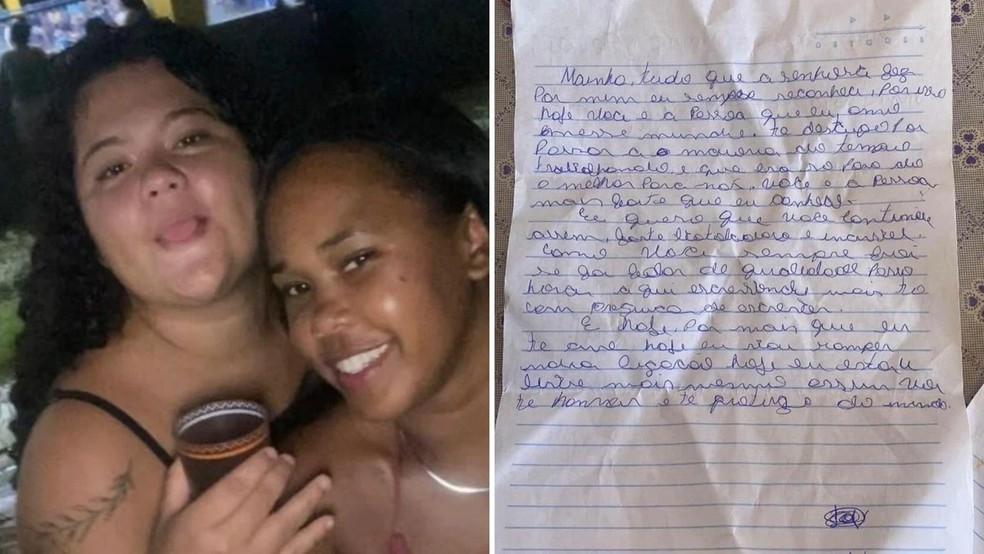 Mainha, tudo que a senhora fez
Por mim eu sempre reconheci, Por isso
hoje você e a Pessoa que eu amo
nesse mundo. te desculpe Por
Passar a maioria do tempo
trabalhando e que era so Para da
o melhor Para nos. Você e a Pessoa
mais forte que eu conheci.
Eu quero que você continue
assim, forte trabalhadora e incrivel
como você sempre foi
se fala de qualidade Passo
horas a qui escrevendo mais to
com preguiça de escrever.
E hoje, Por mais que eu
te ame hoje eu vou romper
nossa ligação hoje eu estou
livre mais mesmo assim vou
te honrar e te proteger do mundo.